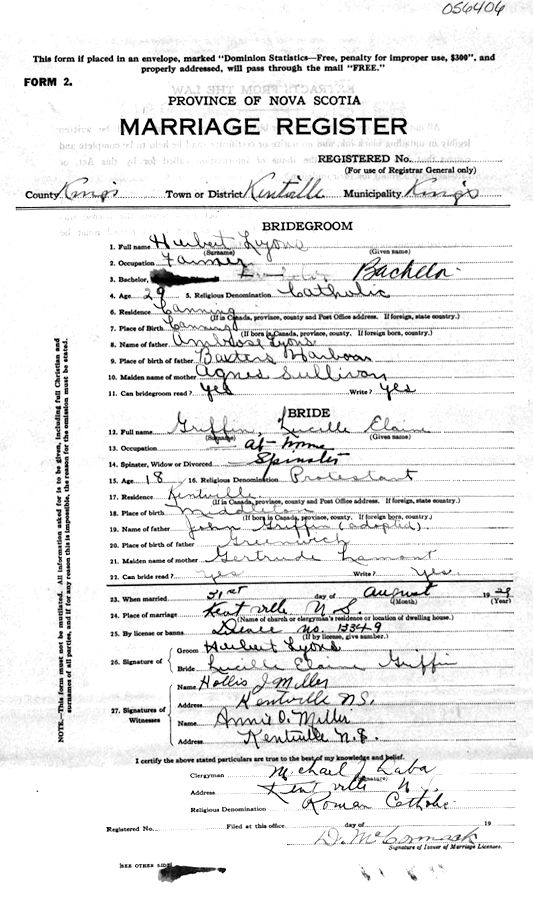 056406
This form if placed in an envelope, marked "Dominion Statistics—Free, penalty for improper use, $300", and
properly addressed, will pass through the mail "FREE."
FORM 2.
PROVINCE OF NOVA SCOTIA
MARRIAGE REGISTER
REGISTERED No.
(For use of Registrar General only)
County Kings Town or District Kentville Municipality Kings
BRIDEGROOM
1. Full name Herbert Lyons
(Surname) (Given name)
2. Occupation Farmer
3. Bachelor, Bachelor
4. Age 29 5. Religious Denomination Catholic
6. Residence Canning
(If in Canada, province, county and Post Office address. If foreign, state country.)
7. Place of Birth Canning
(If born in Canada, province, county. If foreign born, country.)
8. Name of father Ambrose Lyons
9. Place of birth of father Baxters Harbour
10. Maiden name of mother Agnes Sullivan
11. Can bridegroom read? yes Write? yes
BRIDE
12. Full name Griffin, Lucille Elain
(Surname) (Given name)
13. Occupation at home
14. Spinster, Widow or Divorced Spinster
15. Age 18 16. Religious Denomination Protestant
17. Residence Kentville
(If in Canada, province, county and Post Office address. If foreign, state country.)
18. Place of birth Middleton
(If born in Canada, province, county. If foreign born, country.)
19. Name of father John Griffin (adopted)
20. Place of birth of father Greenwich
21. Maiden name of mother Gertrude Lamont
22. Can bride read? Yes Write? Yes.
23. When married 31st day of August 1929
(Month) (Year)
24. Place of marriage Kentville N.S.
(Name of church or clergyman's residence or location of dwelling house.)
25. By license or banns no. 13349
(If by license, give number.)
26. Signature of
Groom Herbert Lyons
Bride Lucille Elaine Griffin
27. Signatures of Witnesses
Name Hollis J Miller
Address Kentville N.S.
Name Annie D. Miller
Address Kentville N.S.
I certify the above stated particulars are true to the best of my knowledge and belief.
Clergyman Michael J Laba
Signature
Address Kentville N.S.
Religious Denomination Roman Catholic
Registered No. Filed at this office day of 19
D. McCormack
Signature of Issuer of Marriage Licenses.
[SEE OTHER SIDE]
NOTE.—This form must not be mutilated. All information asked for is to be given, including full Christian and
surnames of all parties, and if for any reason this is impossible, the reason for the omission must be stated.